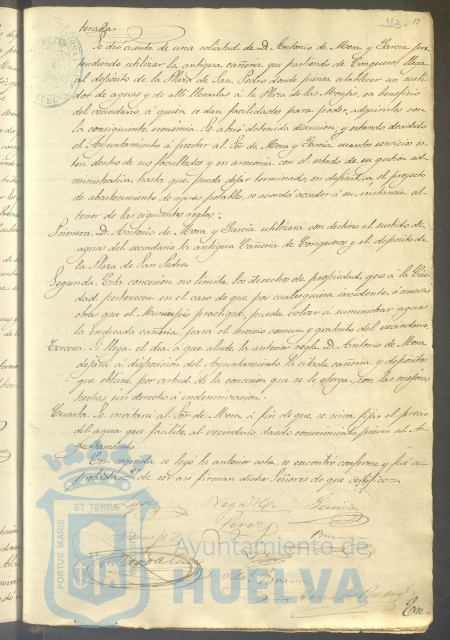 113
terada.
Se dió cuenta de una solicitud de D. Antonio de Mora y García pre-
tendiendo utilizar la antigua cañería que partiendo de Conquero llega
al depósito de la Plaza de San Pedro donde piensa establecer un surti-
dor de aguas y de allí llevarlas á la Plaza de las Monjas, en beneficio
del vecindario, á quién se dan facilidades para poder adquirirlas con
la consiguiente economía. Se abrió detenida discusion; y estando decidido
el Ayuntamiento á prestar al Sr. de Mora y García cuantos servicios es-
ten dentro de sus facultades y en armonía con el estado de su gestion ad-
ministrativa, hasta que pueda dejar terminado en definitiva el proyecto
de abastecimiento de aguas potables, se acordó acceder á su instancia al
tenor de las siguientes reglas:
Primera. D. Antonio de Mora y García utilizará con destino al surtido de
aguas del vecindario la antigua Cañería de Conquero y el depósito de
la Plaza de San Pedro.
Segunda. Esta concesion no limita los derechos de propiedad que á la Ciu-
dad pertenecen en el caso de que por cualesquiera incidente ó nuevas
obras que el Municipio practique, pueda volver á suministrar aguas
la indicada cañería para el servicio comun y gratuito del vecindario.
Tercera. Si llega el dia á que alude la anterior regla, D. Antonio de Mora
dejará á disposicion del Ayuntamiento la citada cañería y depósitos
que obtiene por virtud de la concesion que se le otorga, con las mejoras
hechas sin derecho á indemnizacion.
Cuarta. Se invitará al Sr. de Mora á fin de que se sirva fijar el precio
del agua que facilite al vecindario, dando conocimiento prévio al A-
yuntamiento.
En seguida se leyó la anterior acta, se encontró conforme y fué a-
probada. Y de ser así firman dichos Señores de que certifico=
Vega
Perez
En
PORTUS MARIS
ET TERRAE
Ayuntamiento de
HUELVA